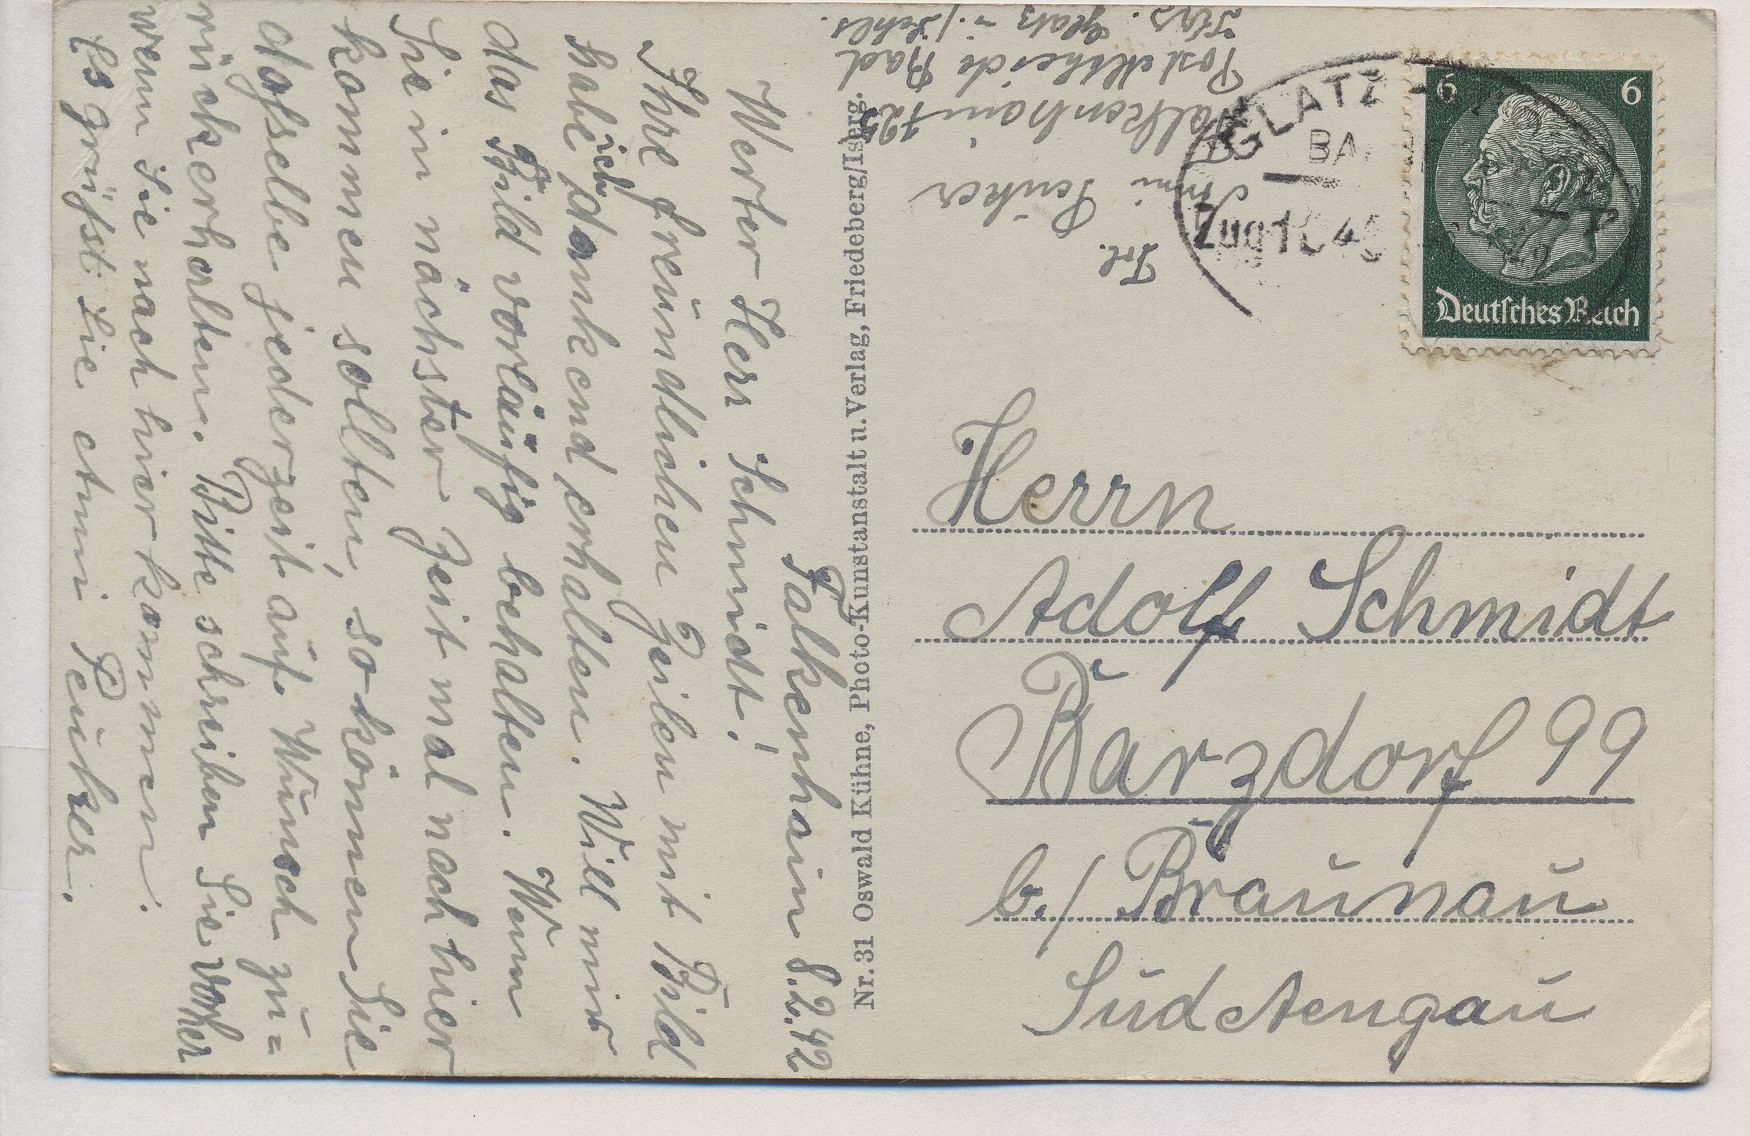 Falkenhain 8.2.42
Werter Herr Schmidt!
Ihre freundlichen Zeilen mit Bild
habe ich dankend erhalten. Will mir
das Bild vorläufig behalten. Wenn
Sie in nächster Zeit mal nach hier
kommen sollten, so können Sie
dasselbe jederzeit auf Wunsch zu=
rückerhalten. Bitte schreiben Sie vorher
wenn Sie nach hier kommen.
Es grüßt Sie Anni Peuker.
Nr. 31 Oswald Kühne, Photo-Kunstanstalt u. Verlag, Friedeberg/Iserg.
Frl.
Anni Peuker
Falkenhain 125
Post Altheide Bad
Krs. Glatz i./Schls.
GLATZ
BA
Zug 1
6 6
Deutsches Reich
Herrn
Adolf Schmidt
Barzdorf 99
b./ Braunau
Sudetengau